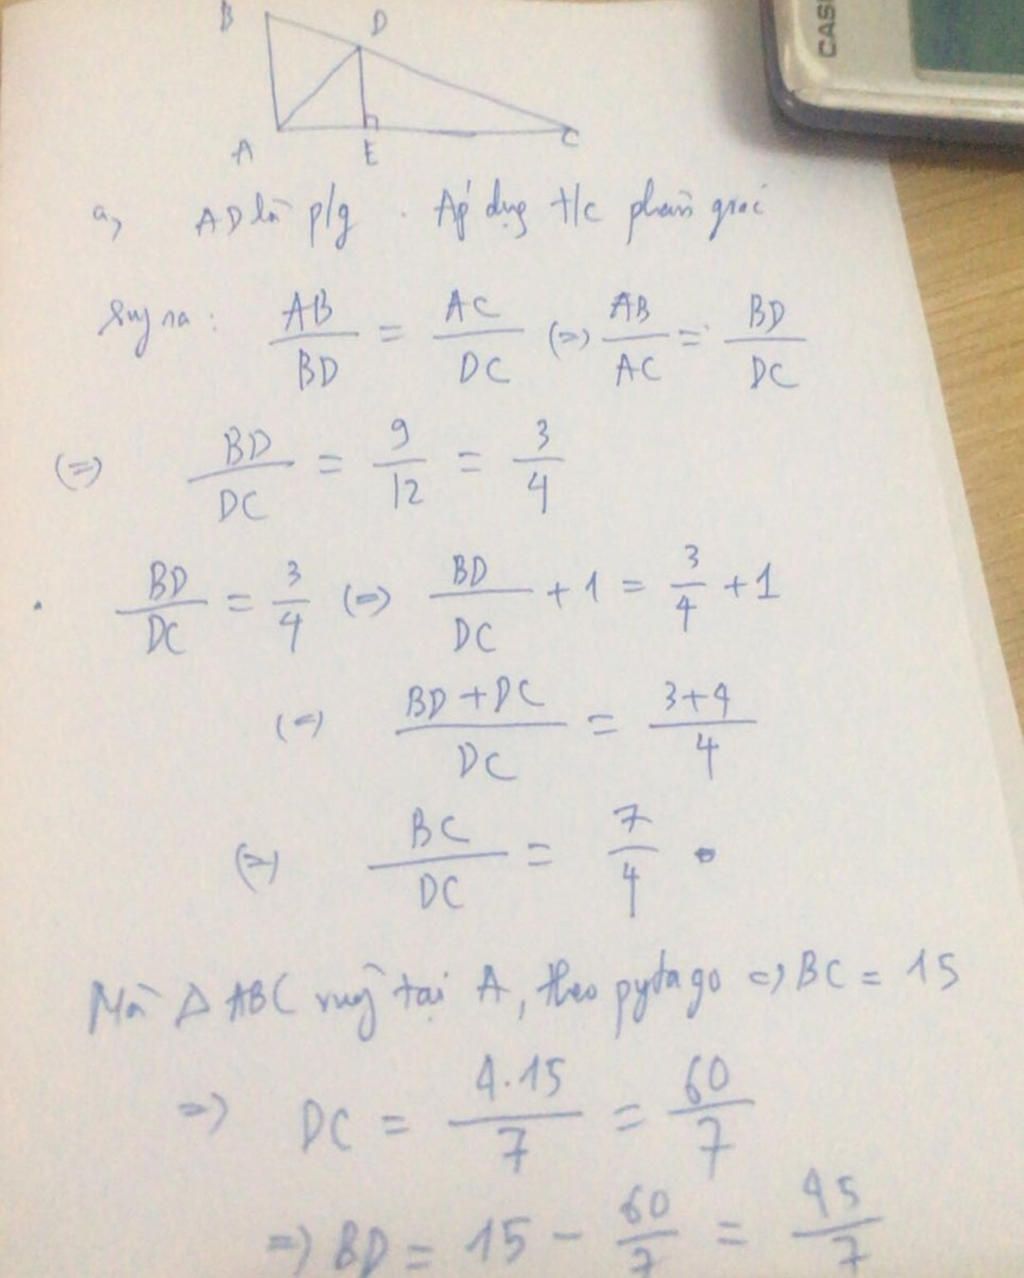 CASI
B D
A E C
a, AD là p/g . Áp dụng t/c phân giác
Suy ra: AB/BD = AC/DC (=) AB/AC = BD/DC
(=) BD/DC = 9/12 = 3/4
. BD/DC = 3/4 (=) BD/DC + 1 = 3/4 + 1
(=) BD+DC/DC = 3+4/4
(=) BC/DC = 7/4 .
Mà Δ ABC vuông tại A, theo pytago => BC = 15
=> DC = 4.15/7 = 60/7
=> BD = 15 - 60/7 = 45/7